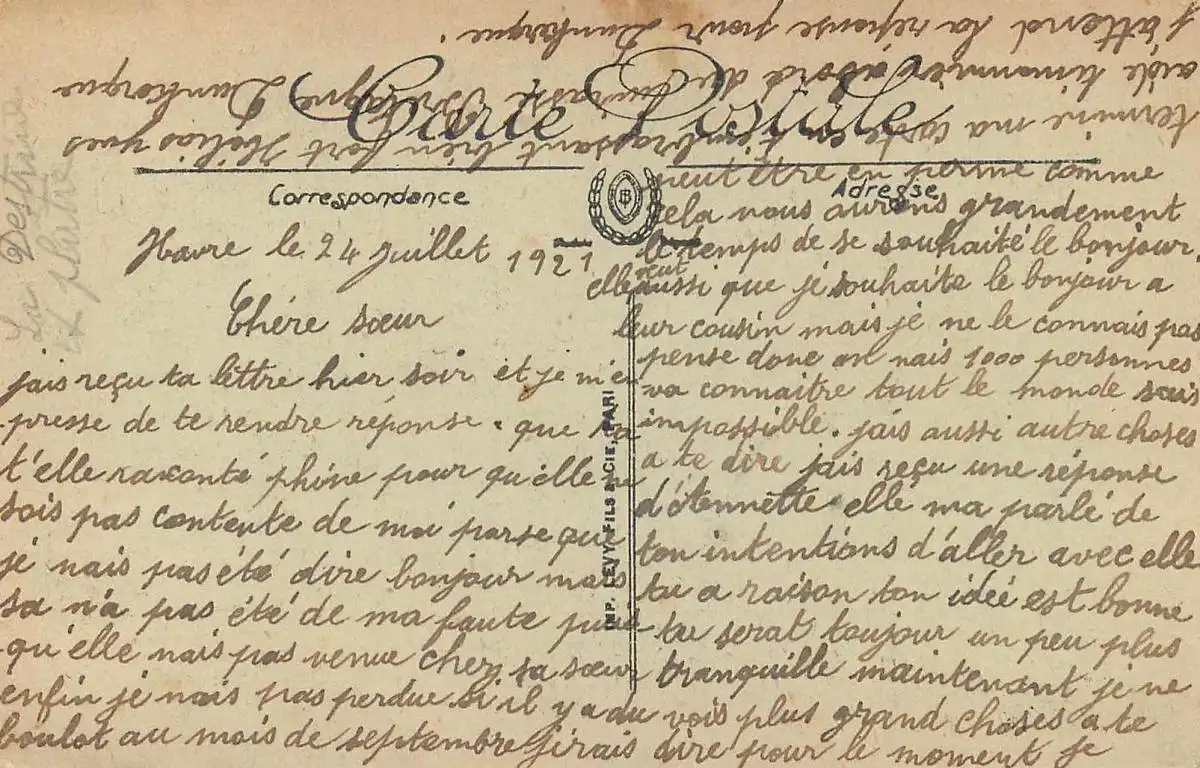 Carte Postale
Correspondance
Adresse
Havre le 24 juillet 1921
Chére sœur
jais reçu ta lettre hier soir et je m'em
presse de te rendre réponse. que
t'elle raconté phine pour qu'elle ne
sois pas contente de moi parse que
je nais pas été dire bonjour mais
sa n'a pas été de ma faute puis
qu'elle nais pas venue chez sa sœur
enfin je nais pas perdue si il y a du
boulot au mois de septembre j'irais
peut être en perme comme
cela nous aurons grandement
le temps de se souhaité le bonjour.
elle veut aussi que je souhaite le bonjour a
leur cousin mais je ne le connais pas
pense donc on nais 1000 personnes
va connaitre tout le monde sais
impossible. jais aussi autre choses
a te dire jais reçu une réponse
d'étennette elle ma parlé de
ton intentions d'aller avec elle
tu a raison ton idéé est bonne
tu serat toujour un peu plus
tranquille maintenant je ne
vois plus grand choses a te
dire pour le moment je
termine ma carte en t'embrassant bien fort Hélias yves
aide timonnier abord du cuirassé Bretagne Dunkerque
j'attend la réponse pour Dunkerque.
IMP. LEVY FILS & CIE, PARI
La Destriné
et platre